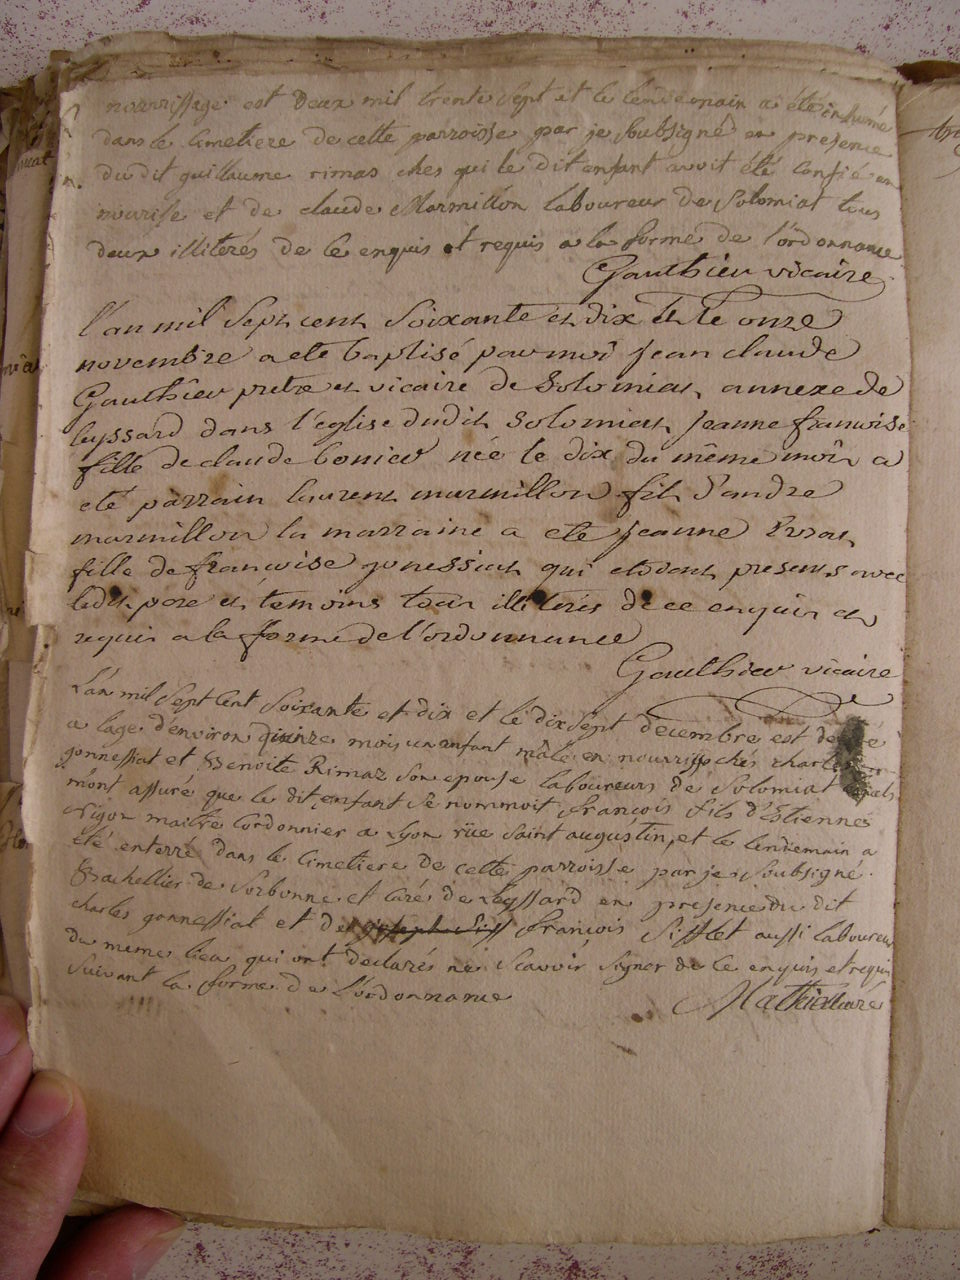 nourrissage est deux mil trente sept et le lendemain a été inhumé
dans le Cimetiere de cette parroisse par je soubsigné en presence
du dit guillaume rimas ches qui le dit enfant avoit été Confié en
nourisse et de claude Marmillon laboureur de Solomiat tous
deux illiterés de ce enquis et requis a la forme de l'ordonnance
Gauthieu vicaire
l'an mil sept cent soixante et dix et le onze
novembre a eté baptisé par moi jean claude
Gauthieu pretre et vicaire de Solomiat annexe de
leyssard dans l'eglise dudit Solomiat jeanne francoise
fille de claude bonier née le dix du même mois a
eté parrain laurent murmillon fils d'andre
marmillon la marraine a eté jeanne
fille de francoise jonessiat qui etoient presents avec
ledit pere et temoins tous illiterés de ce enquis et
requis a la forme de l'ordonnance
Gauthieu vicaire
L'an mil sept cent soixante et dix et le dix sept decembre est
a lage d'environ quinze mois un enfant mâle en chés charles
gonnessiat et Benoite Rimaz son epouse laboureurs de Solomiat
m'ont assuré que le dit enfant se nommoit françois fils d'Estienne
Nigon maitre Cordonnier a Lyon rüe saint augustin, et le lendemain a
été enterré dans le Cimetiere de cette parroisse par je soubsigné
Bachellier de Sorbonne et curé de Leyssard en presence du dit
charles gonnessiat et de françois Sifflet aussi laboureur
du meme lieu qui ont declarés ne scavoir signer de ce enquis et requis
suivant la forme de l'ordonnance